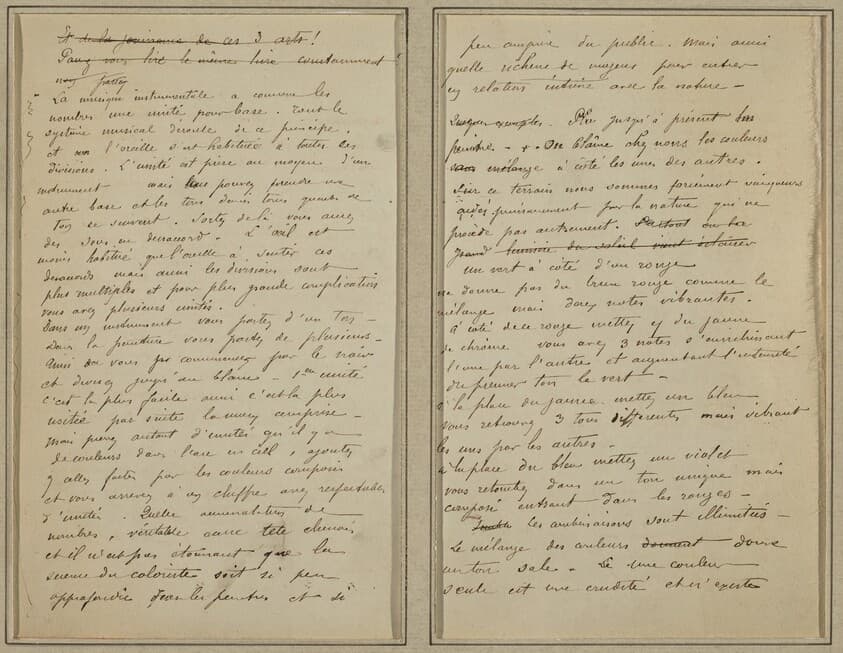 Et de la jouissance de ces 3 arts!
Pouvez vous lire le même livre constamment
vous partez
La musique instrumentale a comme les
nombres une unité pour base. Tout le
système musical découle de ce principe.
et l'oreille s'est habituée à toutes les
divisions. L'unité est prise au moyen d'un
instrument mais vous pouvez prendre une
autre base et les tons demi tons quarts de
ton se suivent. Sortez de là vous aurez
des sons en désaccord. L'œil est
moins habitué que l'oreille à sentir ces
désaccords mais aussi les divisions sont
plus multiples et pour plus grande complication
vous avez plusieurs unités.
Dans un instrument vous partez d'un ton -
Dans la peinture vous partez de plusieurs -
Ainsi vous commencez par le noir
et divisez jusqu'au blanc - 1ere unité
c'est la plus facile aussi c'est la plus
usitée par suite la mieux comprise -
Mais prenez autant d'unités qu'il y a
de couleurs dans l'arc en ciel, ajoutez
y celles faites par les couleurs composées
et vous arrivez à un chiffre assez respectable
d'unités. Quelle accumulation de
nombres, véritable casse tête chinois
et il n'est pas étonnant que la
science du coloriste soit si peu
approfondie par les peintres et si
peu comprise du public. Mais aussi
quelle richesse de moyens pour entrer
en relation intime avec la nature -
jusqu'à présent
peintre. On blâme chez nous les couleurs
sans mélange à côté les unes des autres.
Sur ce terrain nous sommes forcément vainqueurs
aidés puissamment par la nature qui ne
procède pas autrement. Partout ou la
grand lumière du soleil vient éclairer
un vert à côté d'un rouge
ne donne pas du brun rouge comme le
mélange mais deux notes vibrantes.
à côté de ce rouge mettez du jaune
de chrome vous avez 3 notes s'enrichissant
l'une par l'autre et augmentant l'intensité
du premier ton le vert -
à la place du jaune mettez un bleu
vous retrouvez 3 tons différents mais vibrant
les uns par les autres -
à la place du bleu mettez un violet
vous retombez dans un ton unique mais
composé entrant dans les rouges -
Les combinaisons sont illimitées -
Le mélange des couleurs donnent donne
un ton sale - une couleur
seule est une crudité et n'existe